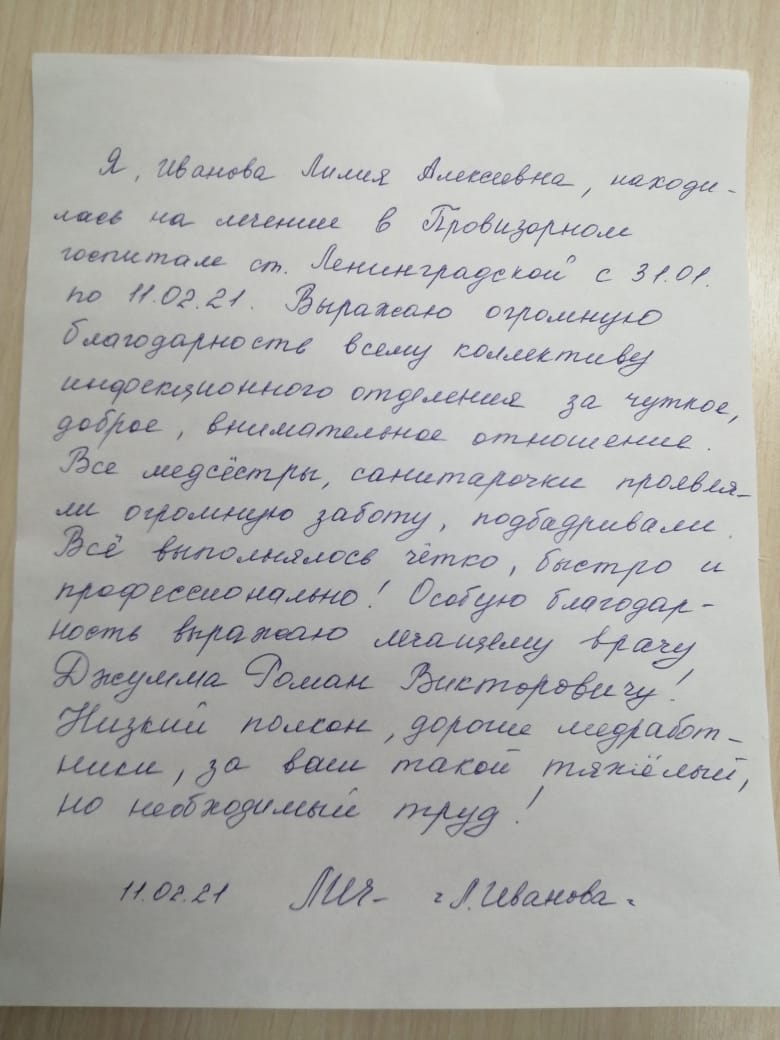 Я, Иванова Лилия Алексеевна, находи-
лась на лечение в Провизорном
госпитале ст. Ленинградской с 31.01.
по 11.02.21. Выражаю огромную
благодарность всему коллективу
инфекционного отделения за чуткое,
доброе, внимательное отношение.
Все медсёстры, санитарочки проявля-
ли огромную заботу, подбадривали.
Всё выполнялось чётко, быстро и
профессионально! Особую благодар-
ность выражаю лечащему врачу
Джумма Роман Викторовичу!
Низкий поклон, дорогие медработ-
ники, за ваш такой тяжёлый,
но необходимый труд!
11.02.21 "Л. Иванова"